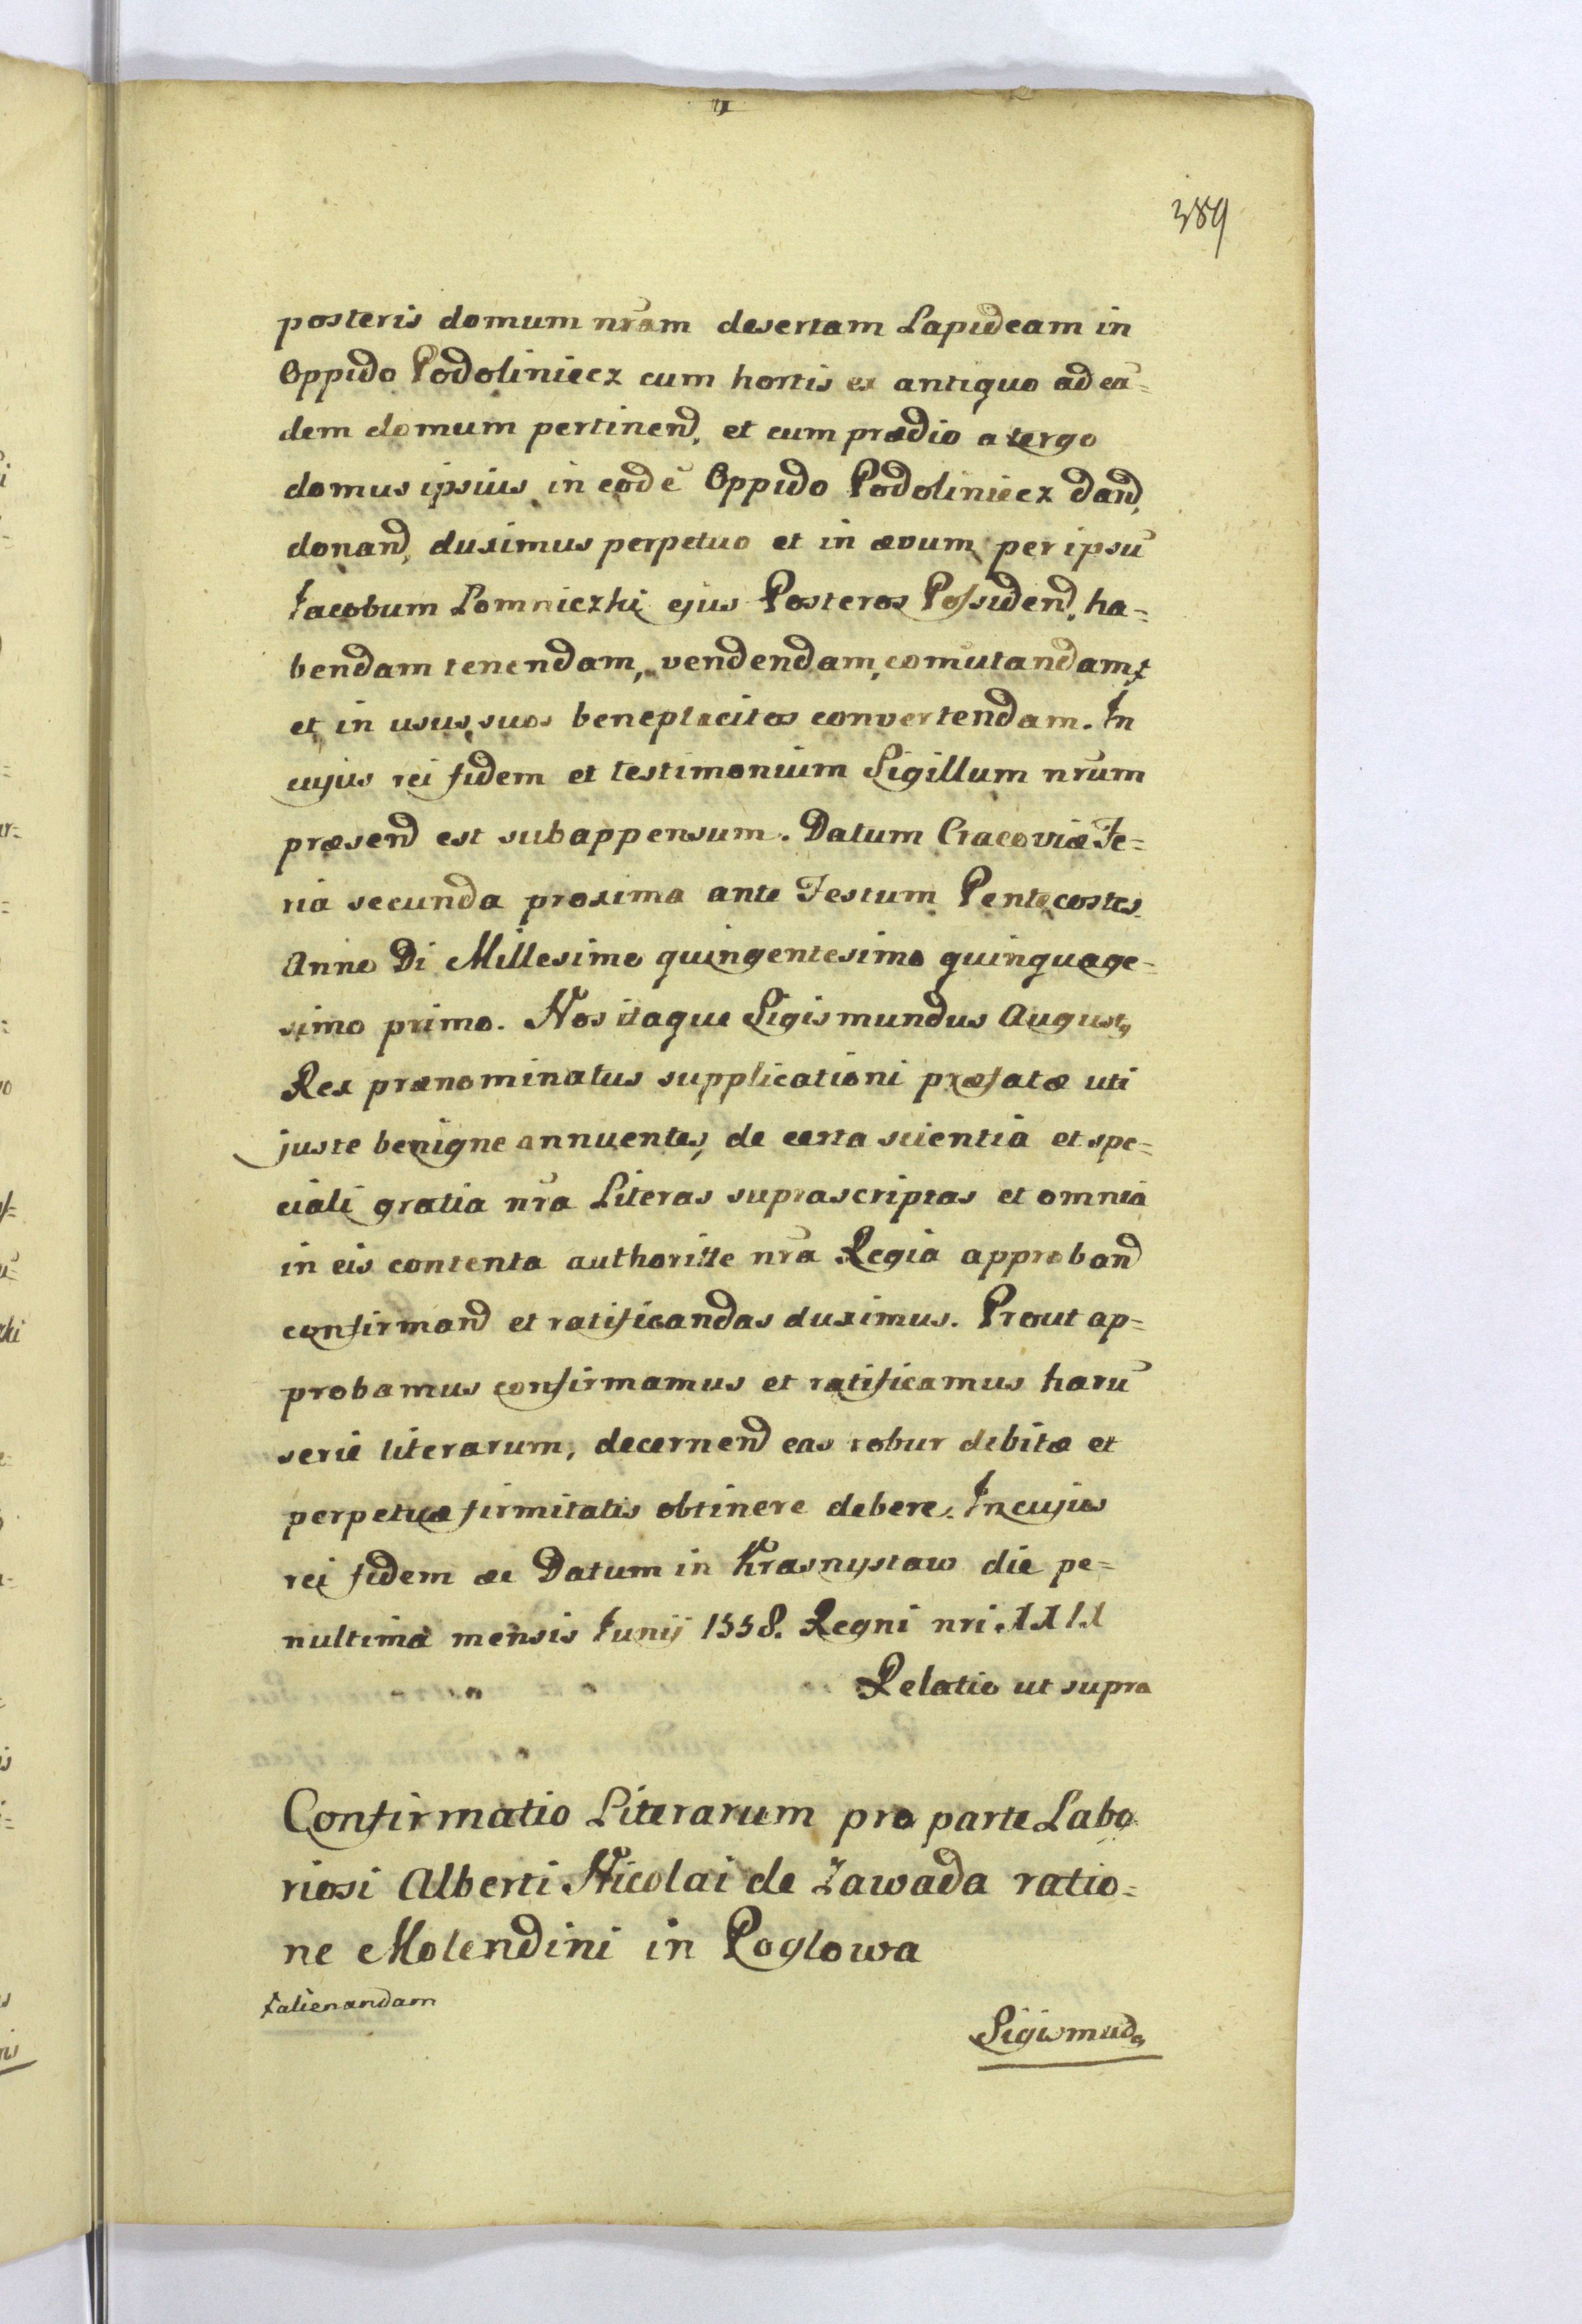 389
posteris domum nr̃am desertam Lapideam in
Oppido Podoliniecz cum hortis ex antiquo ad eã=
dem domum pertinend, et cum prædio a tergo
domus ipsius in eodẽ Oppido Podoliniecz dand,
donand, duximus perpetuo et in ævum per ipsũ
Jacobum Lomniczki ejus Posteros Possidend, ha=
bendam tenendam, vendendam, com̃utandam ꝉ
et in usus suos beneplacitos convertendam. In
cujus rei fidem et testimonium Sigillum nr̃um
præsend est subappensum. Datum Cracoviæ Fe=
ria secunda proxima ante Festum Pentecostes
Anno Di Millesimo quingentesimo quinquage=
simo primo. Nos itaque Sigismundus August9
Rex prænominatus supplicationi præfatæ uti
juste benigne annuentes, de certa scientia et spe=
ciali gratia nr̃a Literas suprascriptas et omnia
in eis contenta authoritte nr̃a Regia approband
confirmand et ratificandas duximus. Prout ap=
probamus confirmamus et ratificamus harũ
serie literarum, decernend eas robur debitæ et
perpetuæ firmitatis obtinere debere. In cujus
rei fidem æc Datum in Krasnystaw die pe=
nultima mensis Junij 1558. Regni nri XXIX
Relatio ut supra
Confirmatio Literarum pro parte Labo
riosi Alberti Nicolai de Zawada ratio=
ne Molendini in Roglowa
ꝉalienandam
Sigismud9